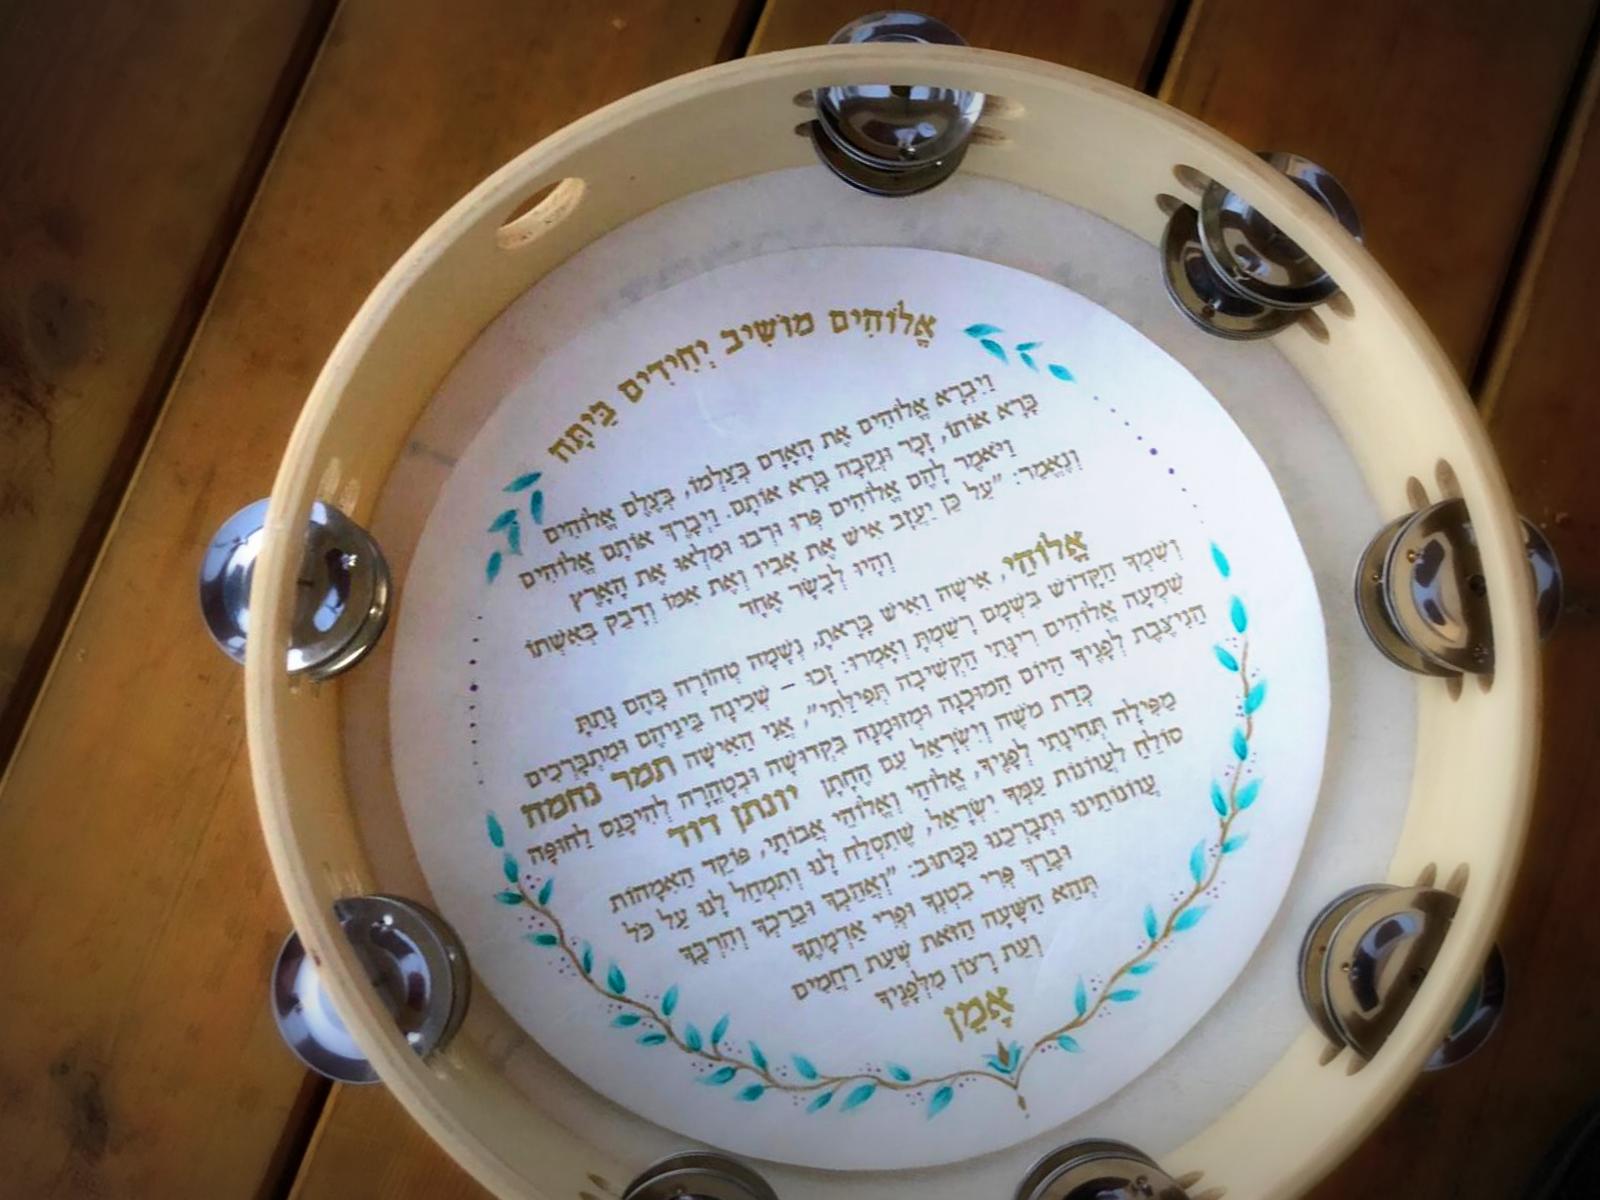 אֱלוֹהִים מוֹשִׁיב יְחִידִים בַּיְתָה
וַיִּבְרָא אֱלוֹהִים אֶת הָאָדָם בְּצַלְמוֹ, בְּצֶלֶם אֱלוֹהִים
בָּרָא אוֹתוֹ, זָכָר וּנְקֵבָה בָּרָא אוֹתָם. וַיְבָרֶךְ אוֹתָם אֱלוֹהִים
וַיֹּאמֶר לָהֶם אֱלוֹהִים פְּרוּ וּרְבוּ וּמִלְאוּ אֶת הָאָרֶץ
וְנֶאֱמַר: "עַל כֵּן יַעֲזָב אִישׁ אֶת אָבִיו וְאֶת אִמּוֹ וְדָבַק בְּאִשְׁתּוֹ
וְהָיוּ לְבָשָׂר אֶחָד
אֱלוֹהַי, אִישָׁה וְאִישׁ בָּרָאתָ, נְשָׁמָה טְהוֹרָה בָּהֶם נָתַתָּ
וְשִׁמְךָ הַקָּדוֹשׁ בִּשְׁמָם רָשַׁמְתָּ וְאָמְרוּ: זָכוּ – שְׁכִינָה בֵּינֵיהֶם וּמִתְבָּרְכִים
שִׁמְעָה אֱלוֹהִים רִינָּתִי הַקְשִׁיבָה תְּפִילָּתִי", אֲנִי הָאִישָׁה תמר נחמה
הַנִּיצֶּבֶת לְפָנֶיךָ הַיּוֹם הַמּוּכָנָה וּמְזוּמָּנָה בִּקְדוּשָּׁה וּבְטָהֳרָה לְהִיכָּנֵס לַחוּפָּה
כְּדַת מֹשֶׁה וְיִשְׂרָאֵל עִם הֶחָתָן יונתן דוד
מַפִּילָה תְּחִינָּתִי לְפָנֶיךָ, אֱלוֹהַי וֵאלוֹהֵי אֲבוֹתַי, פּוֹקֵד הָאִמָּהוֹת
סוֹלֵחַ לַעֲווֹנוֹת עַמְּךָ יִשְׂרָאֵל, שֶׁתִּסְלַח לָנוּ וְתִמְחַל לָנוּ עַל כֹּל
עֲווֹנוֹתֵינוּ וּתְבָרְכֵנוּ כַּכָּתוּב: "וַאֲהֵבְךָ וּבֵרַכְךָ וְהִרְבֶּךָ
וּבֵרַךְ פְּרִי בִטְנְךָ וּפְרִי אַדְמָתֶךָ
תְּהֵא הַשָּׁעָה הַזֹּאת שְׁעַת רַחֲמִים
וְעֵת רָצוֹן מִלְּפָנֶיךָ
אָמֵן